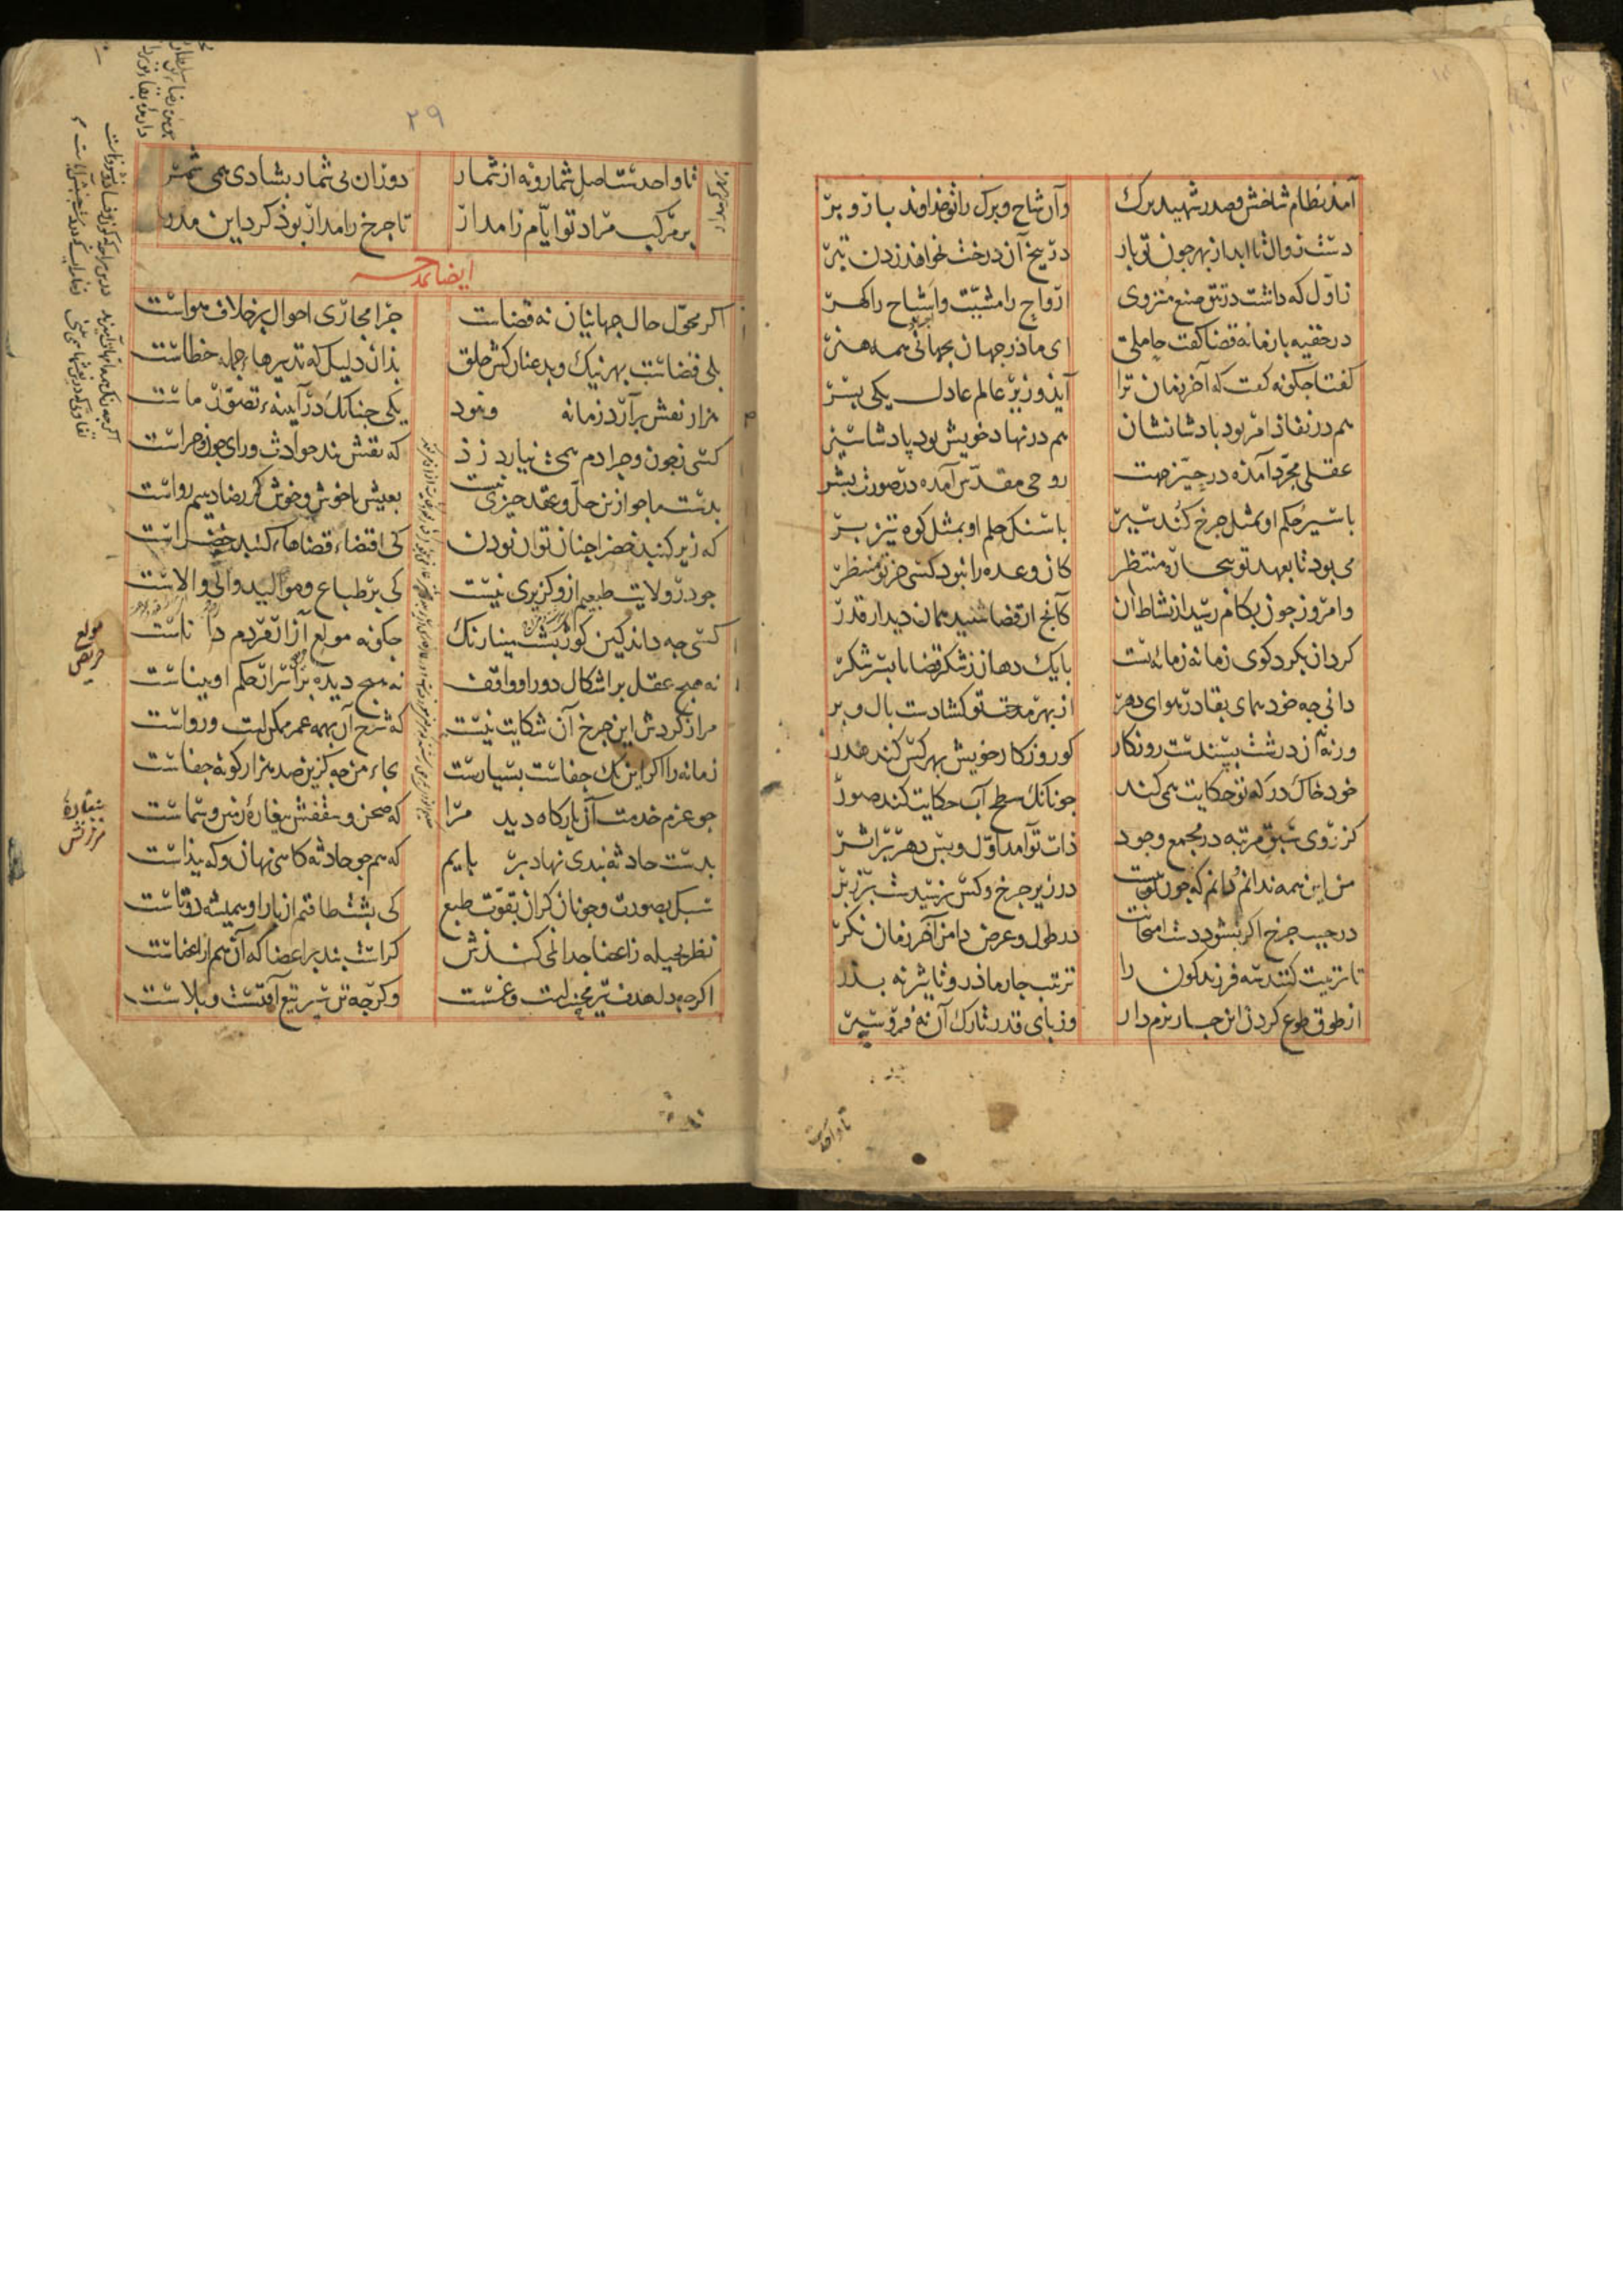 آمد نظام شاخش و صدر شهید برک وآن شاخ و برک را تو خداوند بار و بر
دست زوال تا ابد از بهر چون تو بار در بیخ آن درخت نخواهد زدن تبر
ز اول که داشت در تتق صنع منزوی ارواح را مشیت و اشباح را کهر
در حقیه با زمانه قضا کفت حاملی ای ماذر جهان بجهانی همه هنر
کفتا جکونه کفت که آخر زمان ترا آید وزیر عالم عادل یکی بسر
هم در نفاذ امر بود بادشا نشان هم در نهاد خویش بود پادشا سیر
عقلی مجرد آمده در حیز جهت روحی مقدس آمده در صورت بشر
با سیر حکم او بمثل جرخ کند سیر با سنک حلم او بمثل کوه تیز بر
می بود تا بعهد تو بیجاره منتظر کان وعده را نبود کسی جز تو منتظر
وامروز جون بکام رسید از نشاط آن کانج از قضا شنید همان دید از قدر
کردان بکرد کوی زمانه زمانه ئست با یک دهان ز شکر قضا تا بسر شکر
دانی جه خود همای بقا در هوای دهر از بهر مدت تو کشادست بال و بر
ورنه آن درشت بسندست روزکار کو روزکار خویش بهر کس کند هدر
خود خاک درکه تو حکایت همی کند جونانک سطح آب حکایت کند صور
کز روی سبق مرتبه در مجمع وجود ذات تو آمد اول و بس دهر بر اثر
من این همه ندانم دانم که جون تویی در زیر جرخ و کس نرسیدست بر زبر
در جیب جرخ اکر نشود دست امتحانت در طول و عرض دامن آخر زمان نکر
تا تربیت کنند سه فرزند کون را ترتیب جار ماذر و تاثیر نه بدر
از طوق طوع کردن این جار نرم دار وز بای قدر تارک آن نه فرو سبر
تا واحد ست
۲۹
تا واحدست اصل شمار و نه از شمار دوران بی شمار بشادی همی شمر
بر مرکب مراد تو ایام را مدار تا جرخ را مدار بود کرد این مدر
ایضا یمدحه
اکر محول حال جهانیان نه قضاست جرا مجاری احوال بر خلاف هواست
بلی قضاست بهر نیک و بد عنان کش خلق بذان دلیل که تدبیرهاء جمله خطاست
هزار نقش برآرد زمانه ونبود یکی جنانک در آیینه تصور ماست
کسی ز جون و جرا دم همی نیارد زد که نقش بند حوادث ورای جون و جراست
بدست ما جو ازین حل و عقد جیزی نیست بعیش ناخوش و خوش کر رضا دهیم رواست
که زیر کنبد خضرا جنان توان بودن کی اقتضاء قضاهاء کنبد خضراست
جو در ولایت طبعیم ازو کزیری نیست کی بر طباع و موالید والی والاست
کسی جه داند کین کوز بشت مینا رنک جکونه مولع آزار مردم داناست
نه هیج عقل بر اشکال دور او واقف نه هیج دیده بر اسرار حکم او بیناست
مرا ز کردش این جرخ آن شکایت نیست که شرح آن بهمه عمر ممکن است و رواست
زمانه را اکر این یک جفاست بسیارست بجاء من جه کزین صد هزار کونه جفاست
جو عزم خدمت آن بارکاه دید مرا که صحن و سقفش بیغاره زمین و سماست
بدست حادثه بندی نهاد بر بایم که همجو حادثه کاهی نهان و که بیذاست
سبک بصورت و جونان کران بقوت طبع کی بشت طاقتم از بار او همیشه دوتاست
نظر بحیله ز اعضا جدا نمی کندش کراست بند بر اعضا که آن هم از اعضاست
اکرجه دل هدف تیر محنت است و غمست وکرجه تن سبر تیغ آفتست و بلاست
مولع
حریص
بیغاره
سرزنش